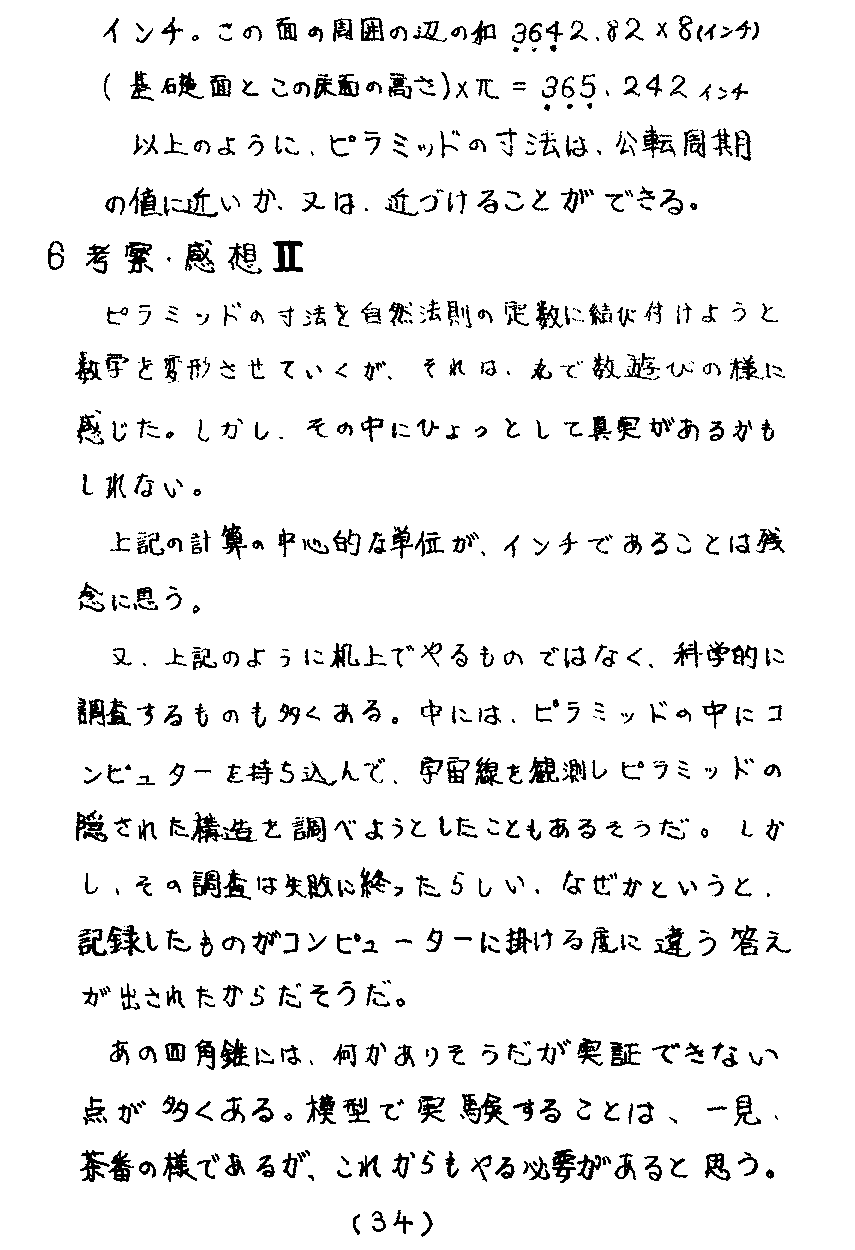 インチ。この面の周囲の辺の和 3642.82×8(インチ)
(基礎面とこの床面の高さ)×π = 365.242 インチ
以上のように、ピラミッドの寸法は、公転周期
の値に近いか、又は、近づけることができる。
6 考察・感想Ⅱ
ピラミッドの寸法を自然法則の定数に結び付けようと
数字を変形させていくが、それは、丸で数遊びの様に
感じた。しかし、その中にひょっとして真実があるかも
しれない。
上記の計算の中心的な単位が、インチであることは残
念に思う。
又、上記のように机上でやるものではなく、科学的に
調査するものも多くある。中には、ピラミッドの中にコ
ンピュターを持ち込んで、宇宙線を観測しピラミッドの
隠された構造を調べようとしたこともあるそうだ。しか
し、その調査は失敗に終ったらしい、なぜかというと、
記録したものがコンピューターに掛ける度に違う答え
が出されたからだそうだ。
あの四角錐には、何かありそうだが実証できない
点が多くある。模型で実験することは、一見、
茶番の様であるが、これからもやる必要があると思う。
(34)